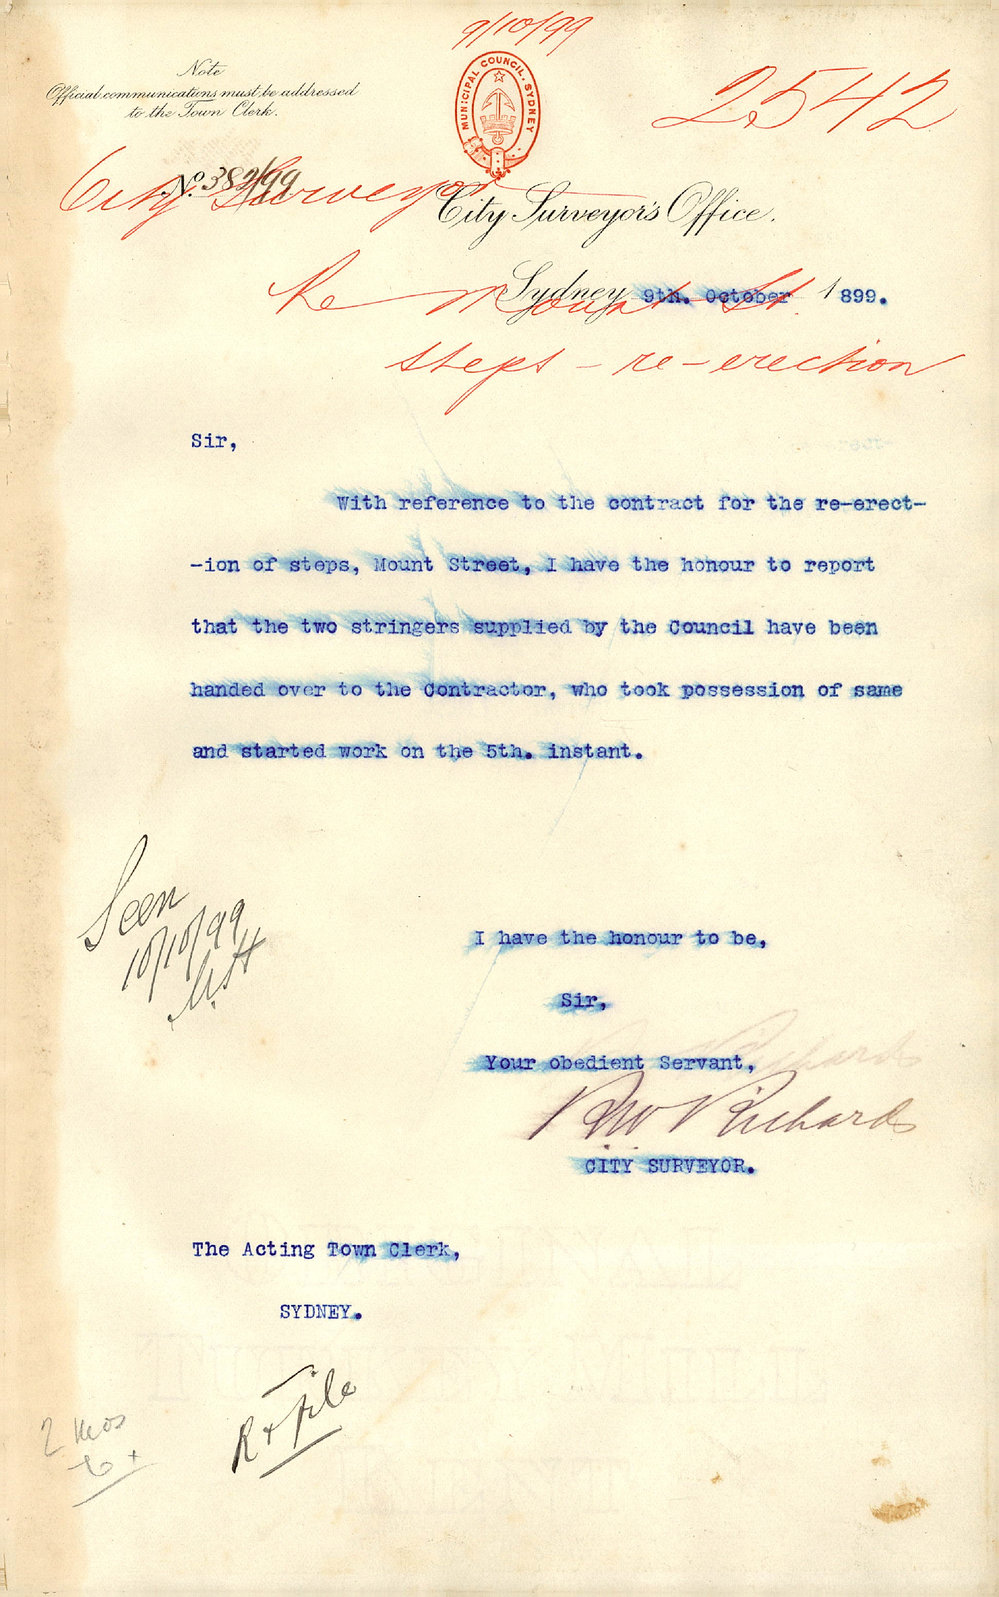 9/10/99
Note
Official communications must be addressed
to the Town Clerk.
MUNICIPAL COUNCIL, SYDNEY
2542
No. 382/99
City Surveyor
City Surveyor's Office.
Sydney 9th. October 1899.
Re Mount St
steps - re-erection
Sir,
With reference to the contract for the re-erect-
-ion of steps, Mount Street, I have the honour to report
that the two stringers supplied by the Council have been
handed over to the Contractor, who took possession of same
and started work on the 5th. instant.
Seen
10/10/99
I have the honour to be,
Sir,
Your obedient Servant,
R W Richards
CITY SURVEYOR.
The Acting Town Clerk,
SYDNEY.
R & file